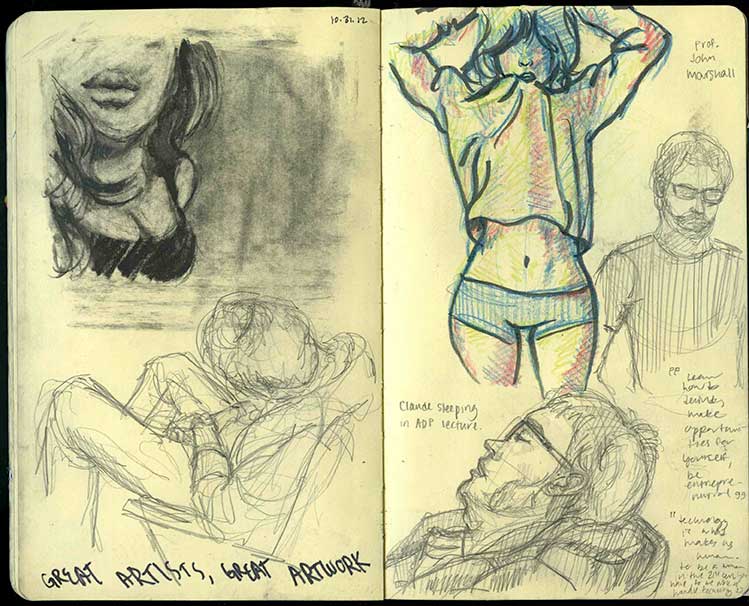 10.31.12
GREAT ARTISTS, GREAT ARTWORK
Prof.
John
Marshall
Claude sleeping
in ADP lecture.
"Learn
how to
make
opportuni-
ties for
yourself,
be
entrepre-
"technology
is what
makes us
human.
to be a human
in the 21st